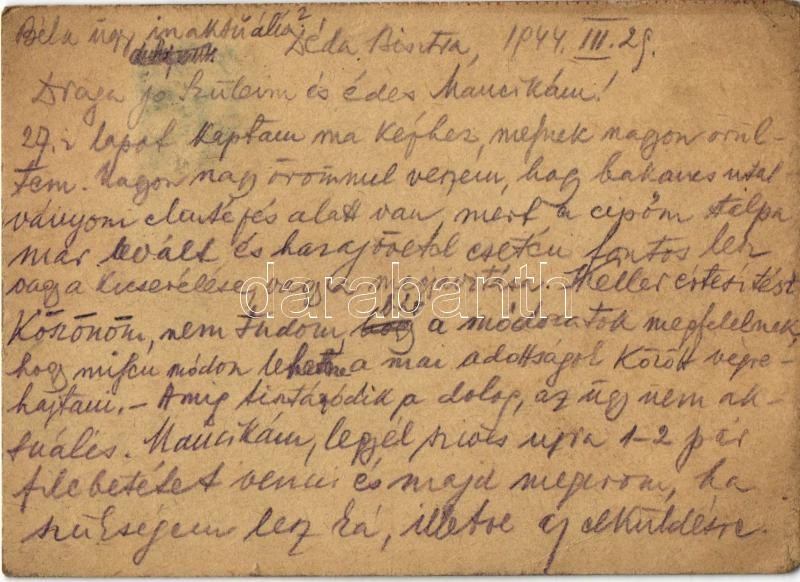 Béla ügy inaktuális?!
Déda Bisztra, 1944. III. 29.
Draga jo Szüleim és édes Mancikám!
27.-i lapot kaptam ma kézhez, melynek nagyon örül-
tem. Nagyon nagy örömmel veszem, hogy bakancs utal-
ványom elintézés alatt van, mert a cipőm talpa
mar levált és hazajövetel esetén fontos lesz
vagy a kicserélése, vagy a megjavitása. Heller értesitést
Köszönöm, nem tudom, a módozatok megfelelnek,
hogy milyen módon lehetne a mai adottságok között végre-
hajtani. - Amig tisztázódik a dolog, az ügy nem ak-
tuális. Mancikám, legyél szives ujra 1-2 pár
filcbetétet venni és majd megirom, ha
szükségem lesz rá, illetve az elküldésre.
darabanth